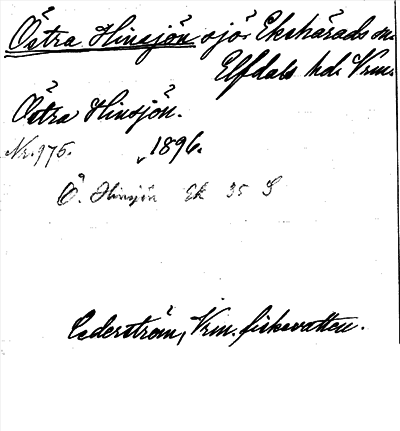 Östra Hinsjön sjö i Ekshärads sn
Elfdals hd. Vrm.
Östra Hinsjön.
Nr. 975. 1896.
Ö. Hinsjön Ek 35 S
Cederström, Vrm. fiskevatten.